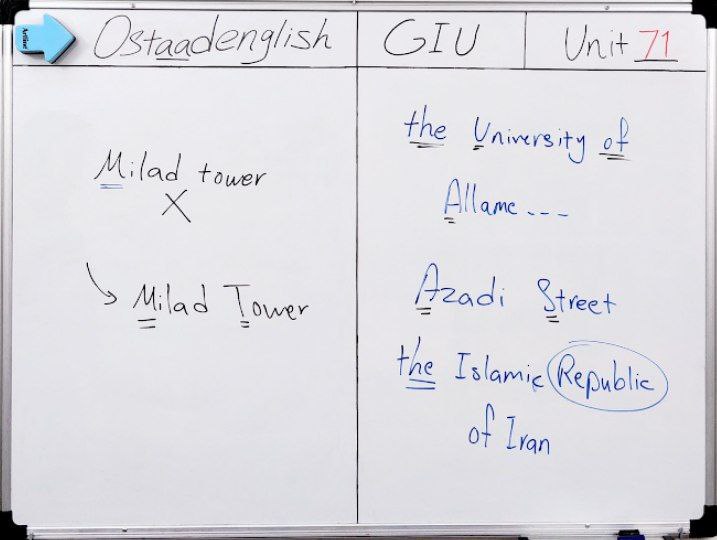 Ostaadenglish
GIU
Unit 71
Milad tower
X
Milad Tower
the University of
Allame ---
Azadi Street
the Islamic Republic
of Iran